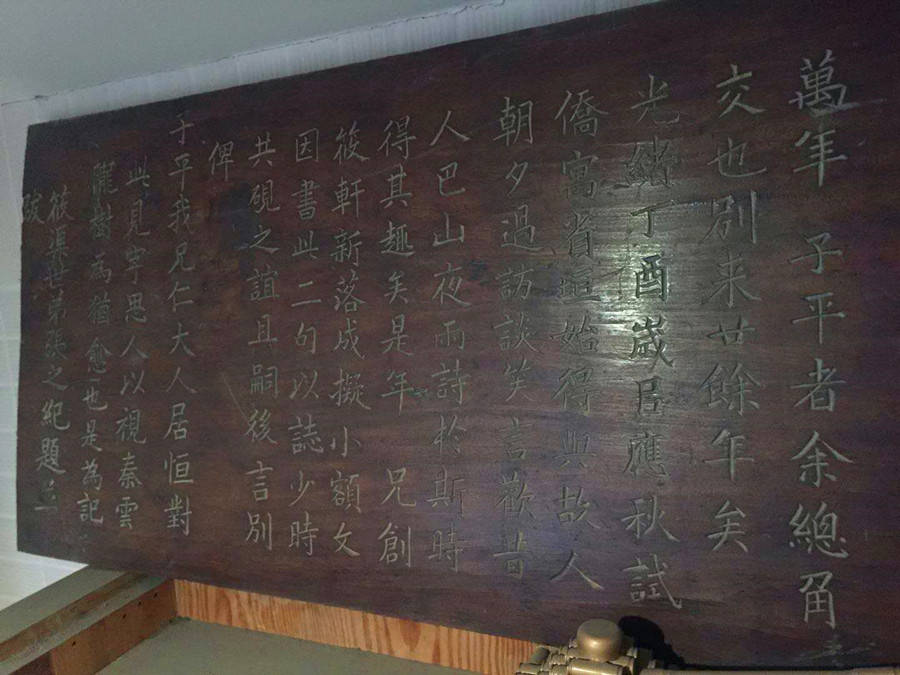 萬年 子平者余總角
交也別来廿餘年矣
光緒丁酉歲居應秋試
僑寓省垣始得與故人
朝夕過訪談笑言歡昔
人巴山夜雨詩於斯時
得其趣矣是年 兄創
筱軒新落成擬小額文
因書此二句以誌少時
共硯之誼且嗣後言別
俾
子平我兄仁大人居恒對
此見字思人以視秦雲
隴樹為猶愈也是為記
筱渠世弟張之紀題並
跋